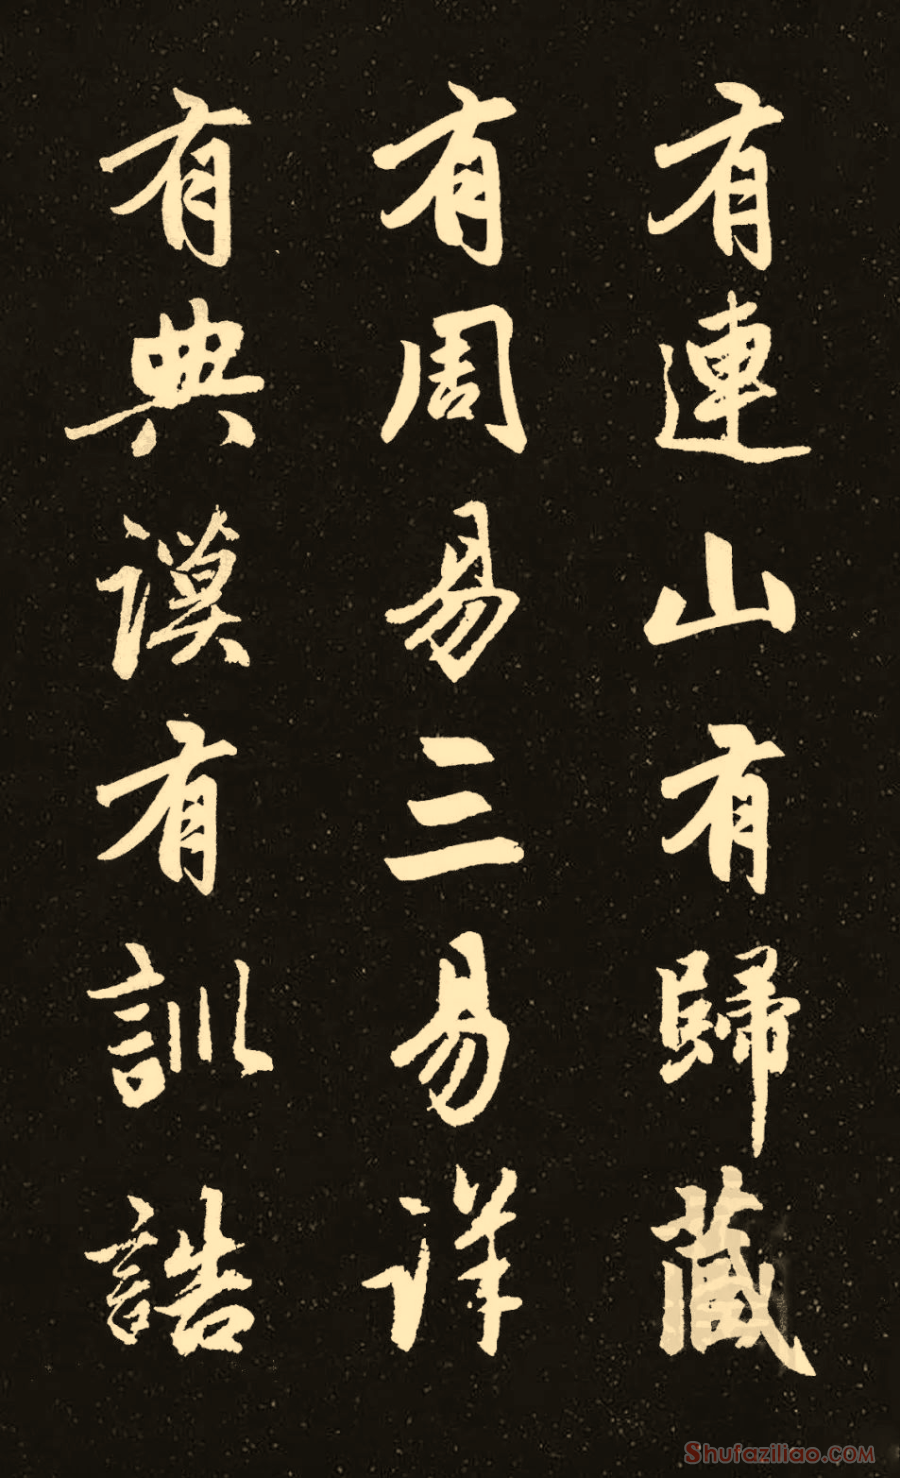 有連山有歸藏
有周易三易详
有典谟有訓誥
Shufaziliao.com